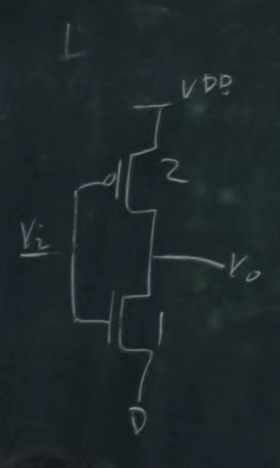 L
VDD
2
Vi
Vo
1
D